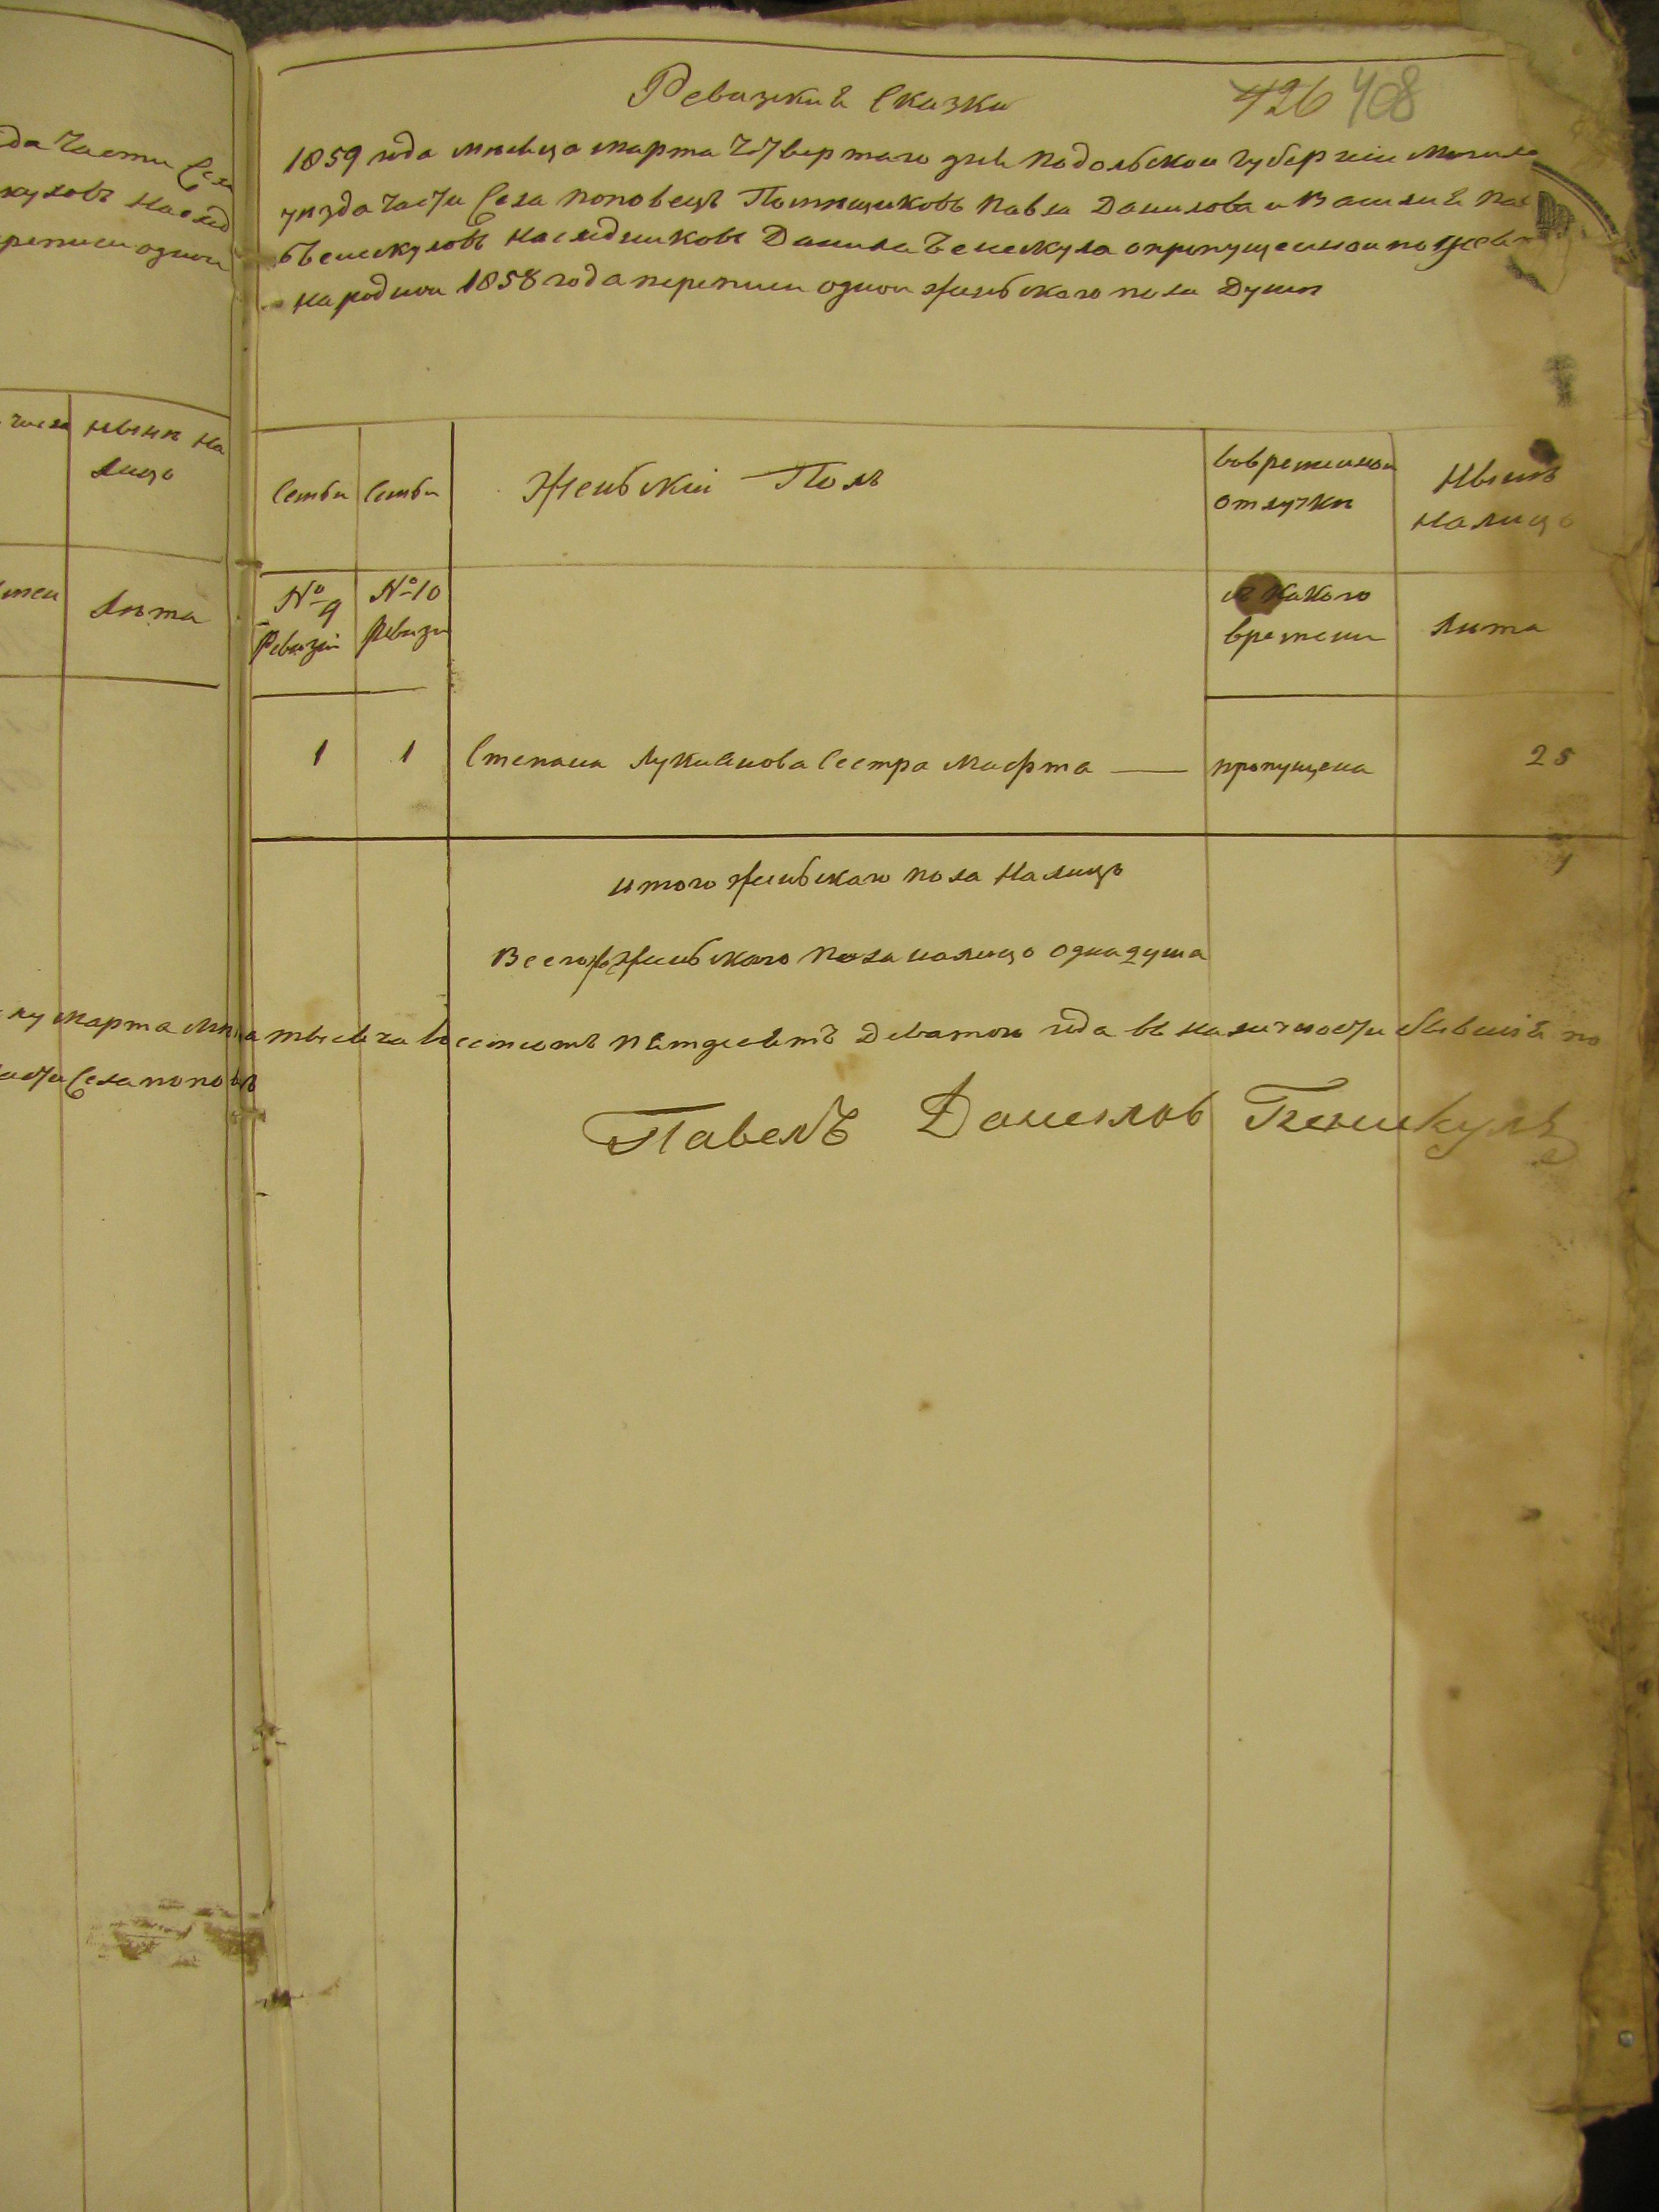 да Части Села
кулов Наслѣд
переписи одной
числа
нынѣ На
лицо
Лѣта
ку марта
части Села попов
Ревизкия Сказки
426 408
1859 года мѣсяца марта Четвертаго дня Подольской губерніи Могиле
уѣзда части Села Поповецъ Помѣщиковъ Павла Данилова и Василия Пав
Бенескуловъ наслѣдниковъ Данила Бенескула о пропущенной по
народной 1858 года переписи одной женьского пола Души
Семьи
Семьи
Женьскій Полъ
вовременной
отлучки
Нынѣ
Налицо
№ 9
Ревизіи
№ 10
Ревизіи
съ Какого
времени
Лѣта
1 1 Степана Лукиянова Сестра Марфта — пропущена 25
итого женьскаго пола На лицо 1
Всего женьскаго пола налицо одна душа
тысяча восемсотъ пятдесятъ Девятого года въ наличности бывшія по
Павелъ Данилов Бенискулъ